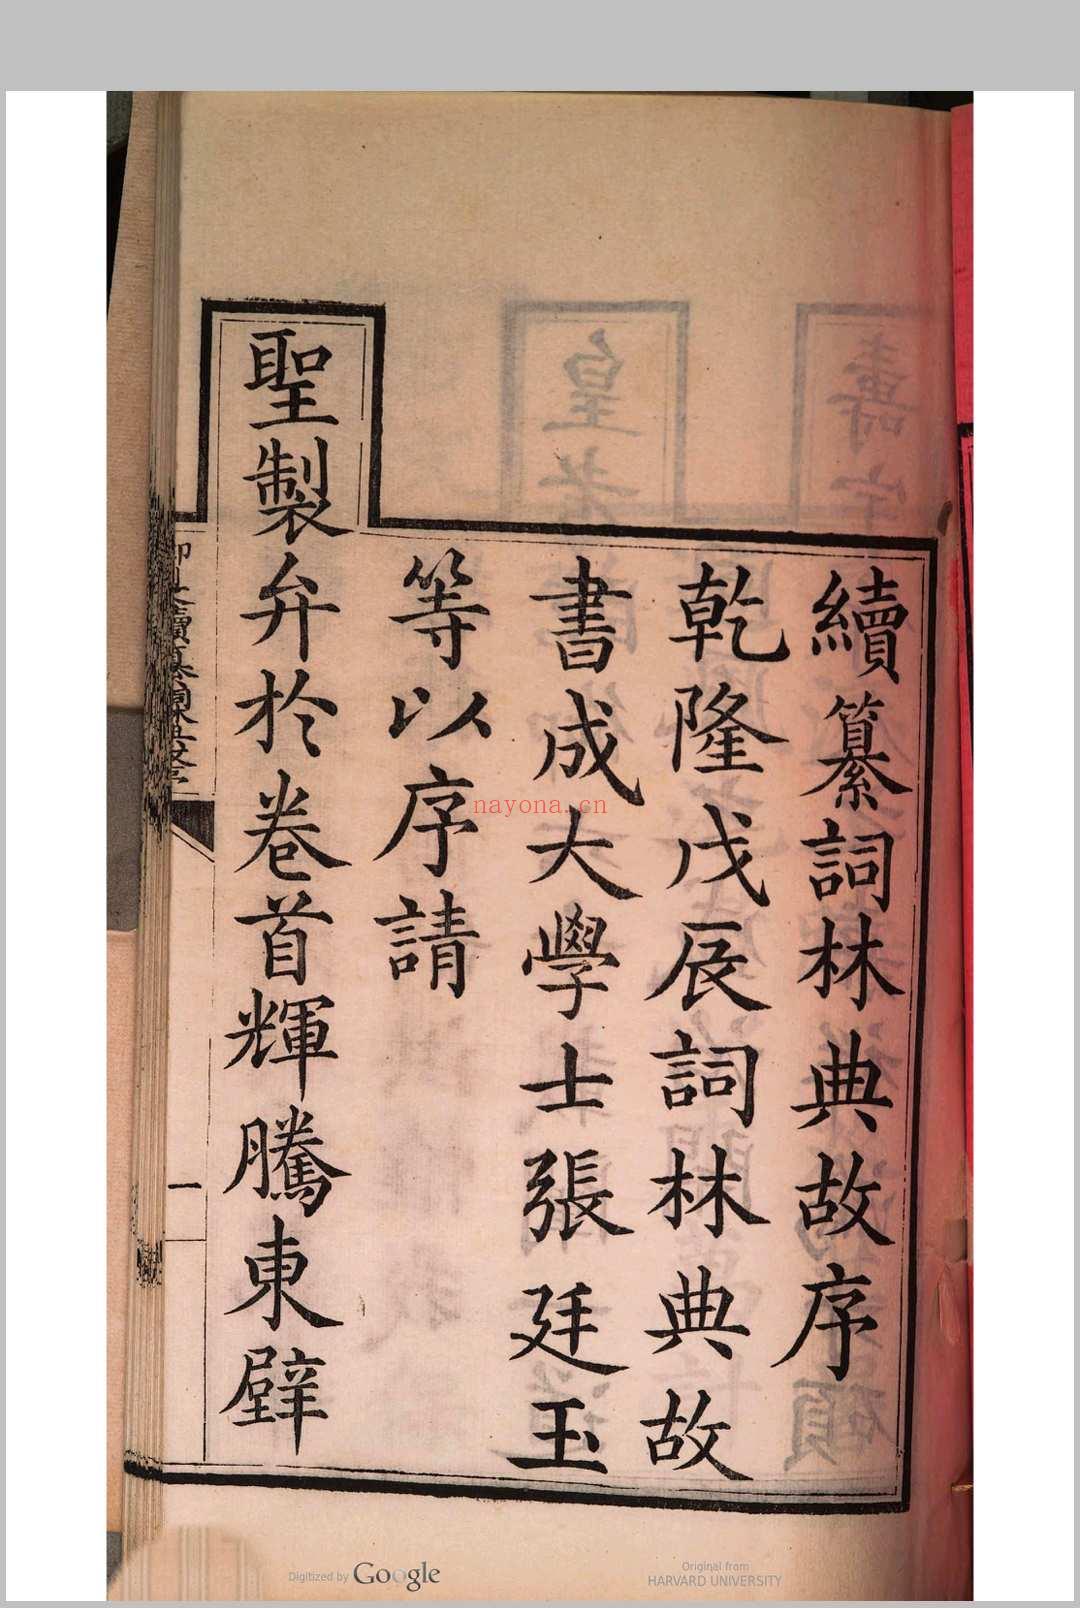 續纂詞林典故序
乾隆戊辰詞林典故
書成大學士張廷玉
等以序請
聖製弁於卷首輝騰東壁
一
nayona.cn
Digitized by Google
Original from
HARVARD UNIVERSITY